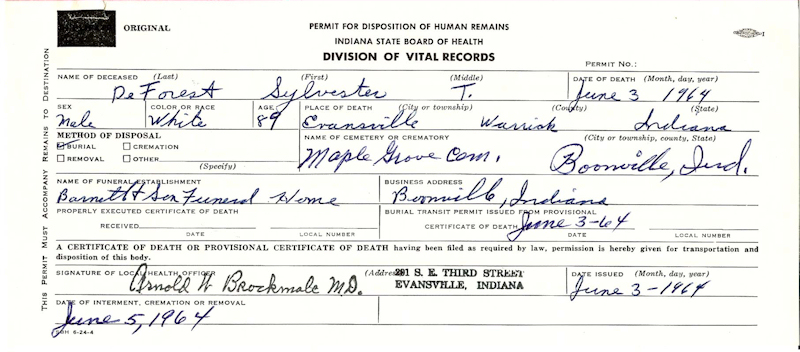 ORIGINAL
PERMIT FOR DISPOSITION OF HUMAN REMAINS
INDIANA STATE BOARD OF HEALTH
DIVISION OF VITAL RECORDS
PERMIT NO.:
THIS PERMIT MUST ACCOMPANY REMAINS TO DESTINATION
NAME OF DECEASED (Last) (First) (Middle) DATE OF DEATH (Month, day, year)
DeForest Sylvester T. June 3 1964
SEX COLOR OR RACE AGE PLACE OF DEATH (City or township) (County) (State)
Male White 89 Evansville Warrick Indiana
METHOD OF DISPOSAL NAME OF CEMETERY OR CREMATORY (City or township, county, State)
BURIAL CREMATION
REMOVAL OTHER (Specify) Maple Grove Cem. Boonville, Ind.
NAME OF FUNERAL ESTABLISHMENT BUSINESS ADDRESS
Barnett & Son Funeral Home Boonville, Indiana
PROPERLY EXECUTED CERTIFICATE OF DEATH BURIAL TRANSIT PERMIT ISSUED FROM PROVISIONAL
RECEIVED CERTIFICATE OF DEATH June 3-64
DATE LOCAL NUMBER DATE LOCAL NUMBER
A CERTIFICATE OF DEATH OR PROVISIONAL CERTIFICATE OF DEATH having been filed as required by law, permission is hereby given for transportation and
disposition of this body.
SIGNATURE OF LOCAL HEALTH OFFICER (Address) 201 S. E. THIRD STREET DATE ISSUED (Month, day, year)
Arnold W Brockmole M.D. EVANSVILLE, INDIANA June 3-1964
DATE OF INTERMENT, CREMATION OR REMOVAL
June 5, 1964
6-24-4